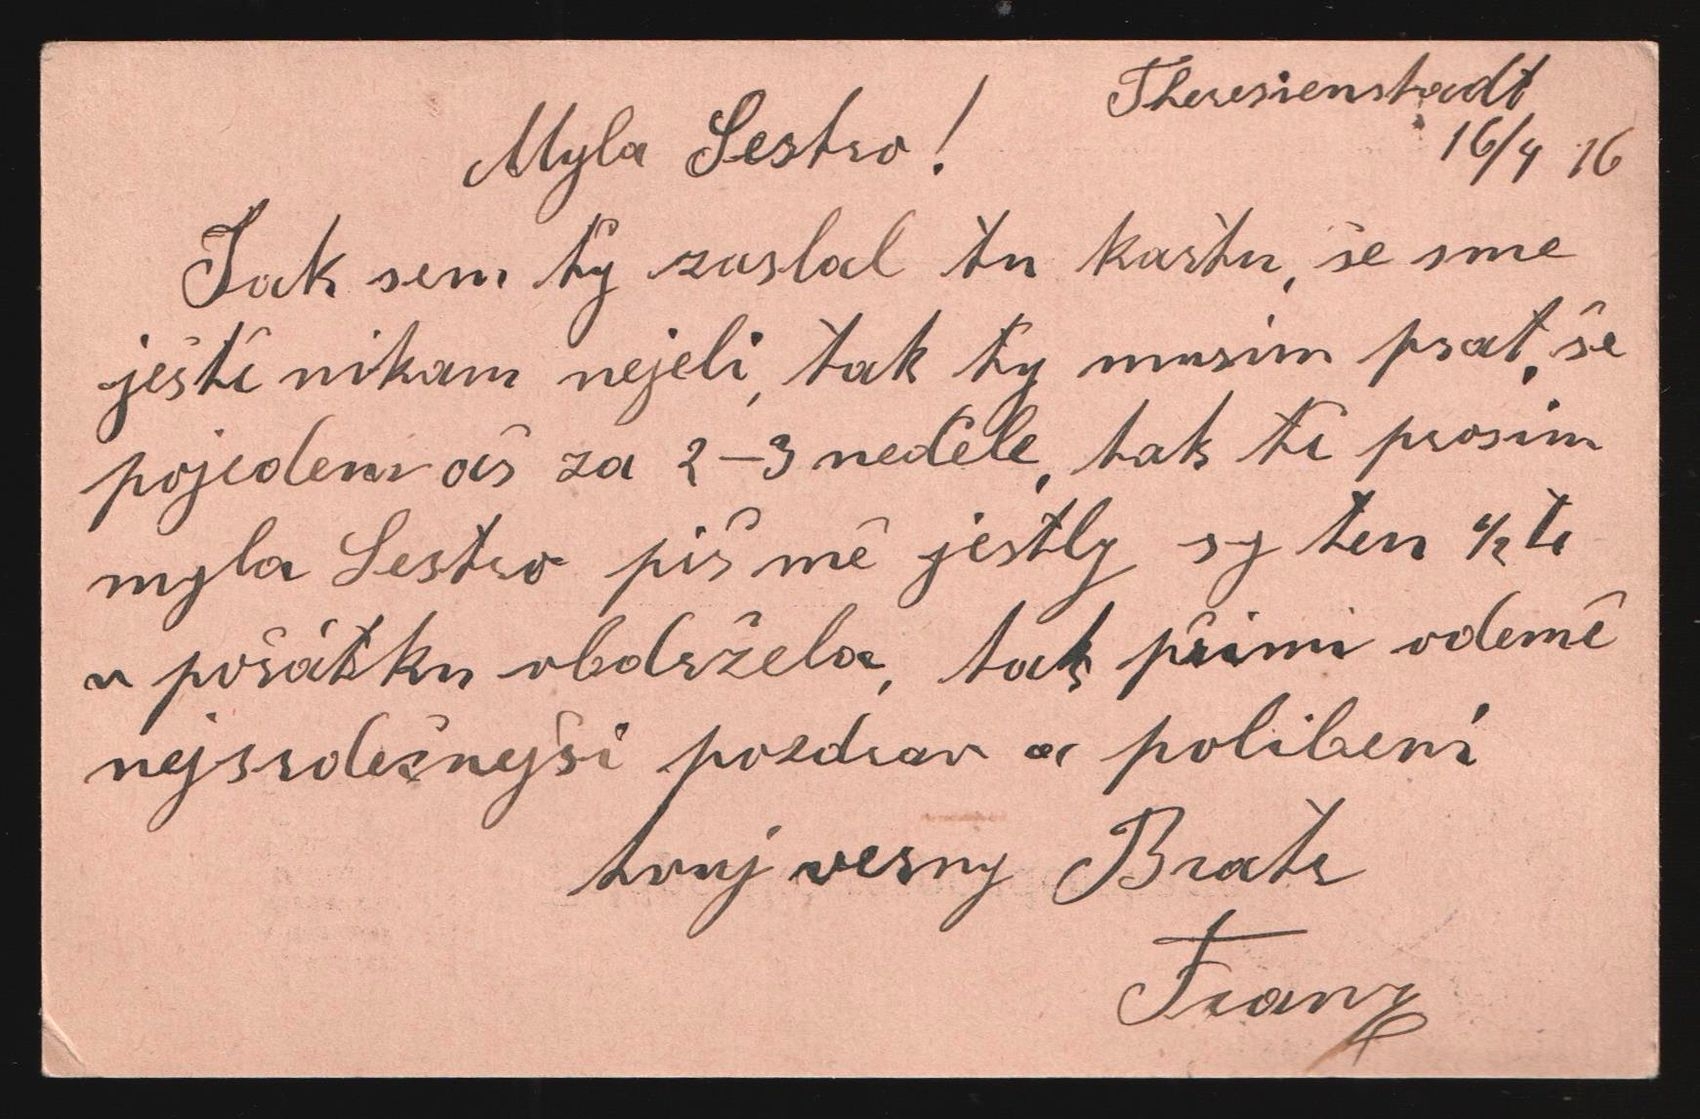 Theresienstadt
16/4 16
Myla Sestro!
Jak sem ty zaslal tu kartu, še sme
ještě nikam nejeli, tak ty musim psat, še
pojedem aš za 2-3 neděle, tak tě prosim
myla Sestro piš mě jestly sy ten
v pořátku obdržela, tak přimi odemě
nejsrdečnejši pozdrav a polibeni
tvuj verny Bratr
Franz